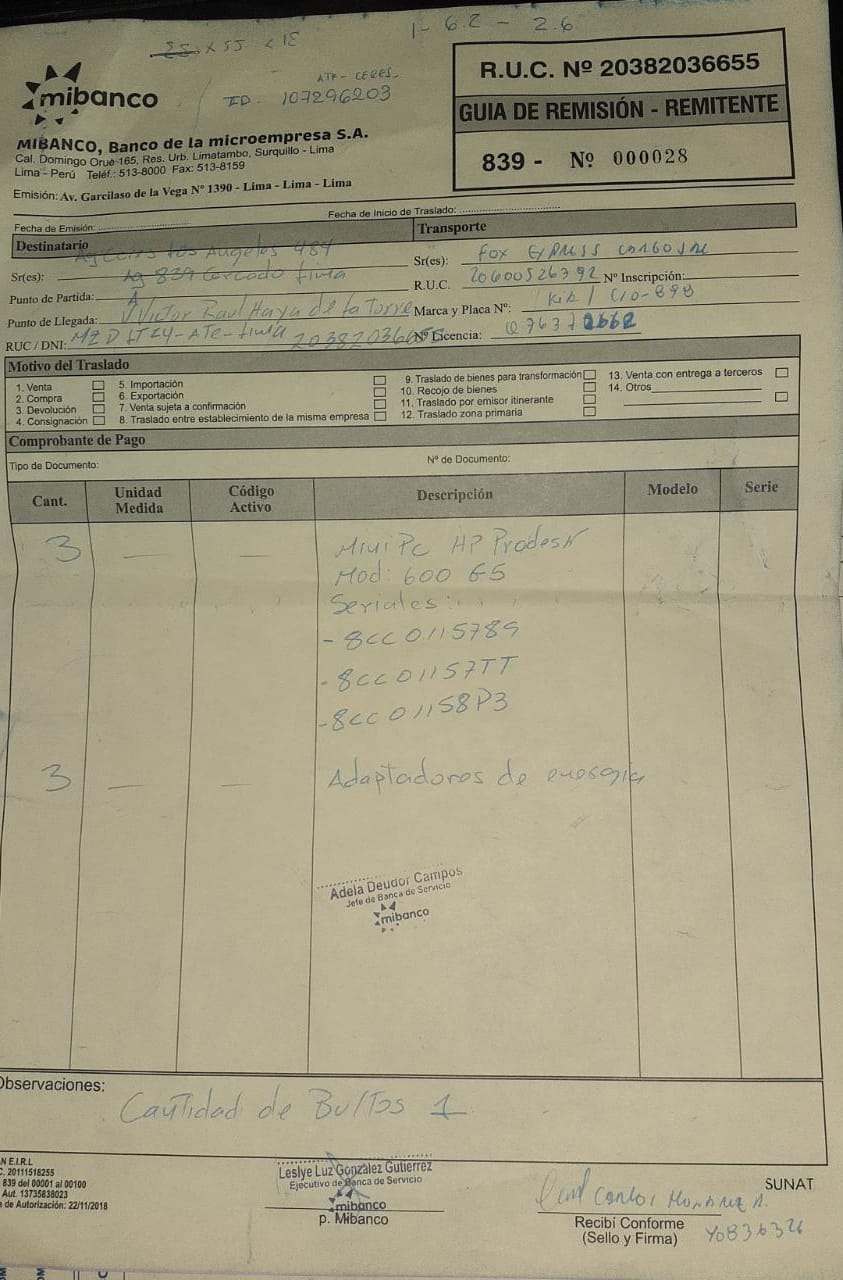 1 - 6.2 - 2.6
x 55 x 18
ATE - CERES
ID. 107296203
mibanco
MIBANCO, Banco de la microempresa S.A.
Cal. Domingo Orué 165, Res. Urb. Limatambo, Surquillo - Lima
Lima - Perú Teléf.: 513-8000 Fax: 513-8159
Emisión: Av. Garcilaso de la Vega Nº 1390 - Lima - Lima - Lima
R.U.C. Nº 20382036655
GUIA DE REMISIÓN - REMITENTE
839 - Nº 000028
Fecha de Emisión:
Fecha de Inicio de Traslado:
Destinatario
Transporte
Ag Ceres Los Angeles 484
Sr(es):
Punto de Partida: Ag 839 Cercado Lima
Punto de Llegada: A V Victor Raul Haya de la Torre
RUC / DNI: MZ D LT 24 - ATE - Lima 20382036655
Sr(es): FOX EXPRESS CARGO
R.U.C. 20600526392 Nº Inscripción:
Marca y Placa Nº: KIA / C10-898
Nº Licencia: Q76372662
Motivo del Traslado
1. Venta
2. Compra
3. Devolución
4. Consignación
5. Importación
6. Exportación
7. Venta sujeta a confirmación
8. Traslado entre establecimiento de la misma empresa
9. Traslado de bienes para transformación
10. Recojo de bienes
11. Traslado por emisor itinerante
12. Traslado zona primaria
13. Venta con entrega a terceros
14. Otros
Comprobante de Pago
Tipo de Documento:
Nº de Documento:
Cant. Unidad Medida Código Activo Descripción Modelo Serie
3 — — Mini Pc HP Prodesk
Mod: 600 G5
Seriales:
- 8CC0115789
- 8CC01157TT
- 8CC01158P3
3 — — Adaptadores de energia
Adela Deudor Campos
Jefe de Banca de Servicio
mibanco
Observaciones:
Cantidad de Bultos 1
N E.I.R.L
C. 20111518255
839 del 00001 al 00100
Aut. 13735838023
a de Autorización: 22/11/2018
Leslye Luz González Gutierrez
Ejecutivo de Banca de Servicio
mibanco
p. Mibanco
SUNAT
Carlos
Recibí Conforme
(Sello y Firma)
40836326